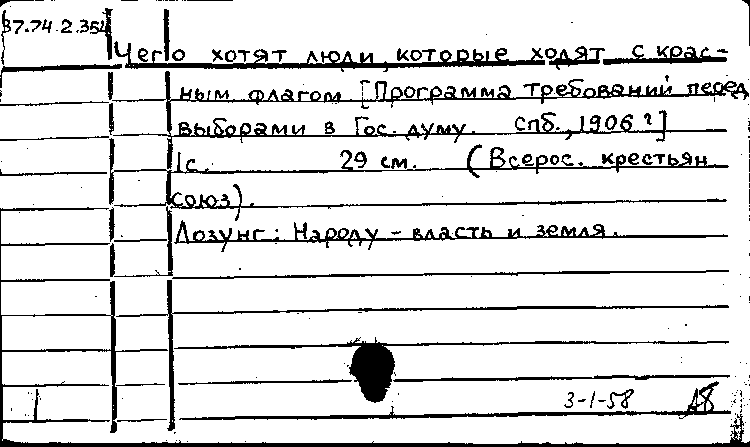 37.74.2.354
Чего хотят люди, которые ходят с крас-
ным флагом [Программа требований перед
выборами в Гос. думу. спб., 1906?]
1с. 29 см. (Всерос. крестьян
союз).
Лозунг: Народу - власть и земля.
1 3-1-58